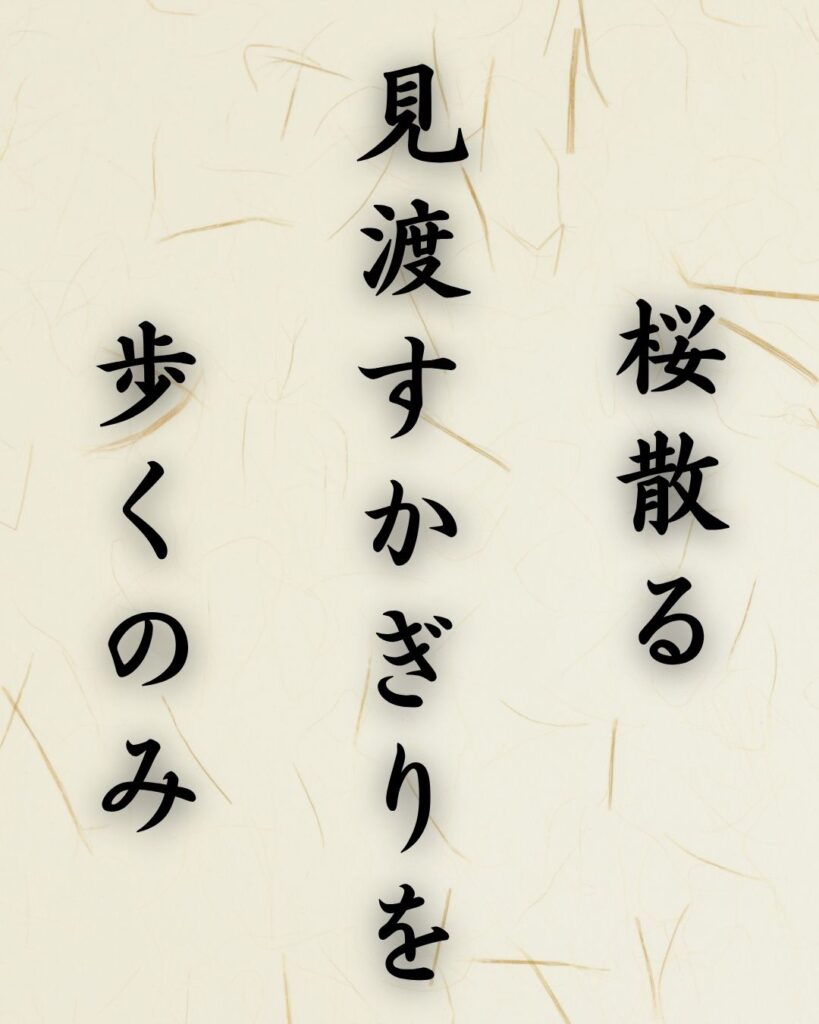 桜散る
見渡すかぎりを
歩くのみ